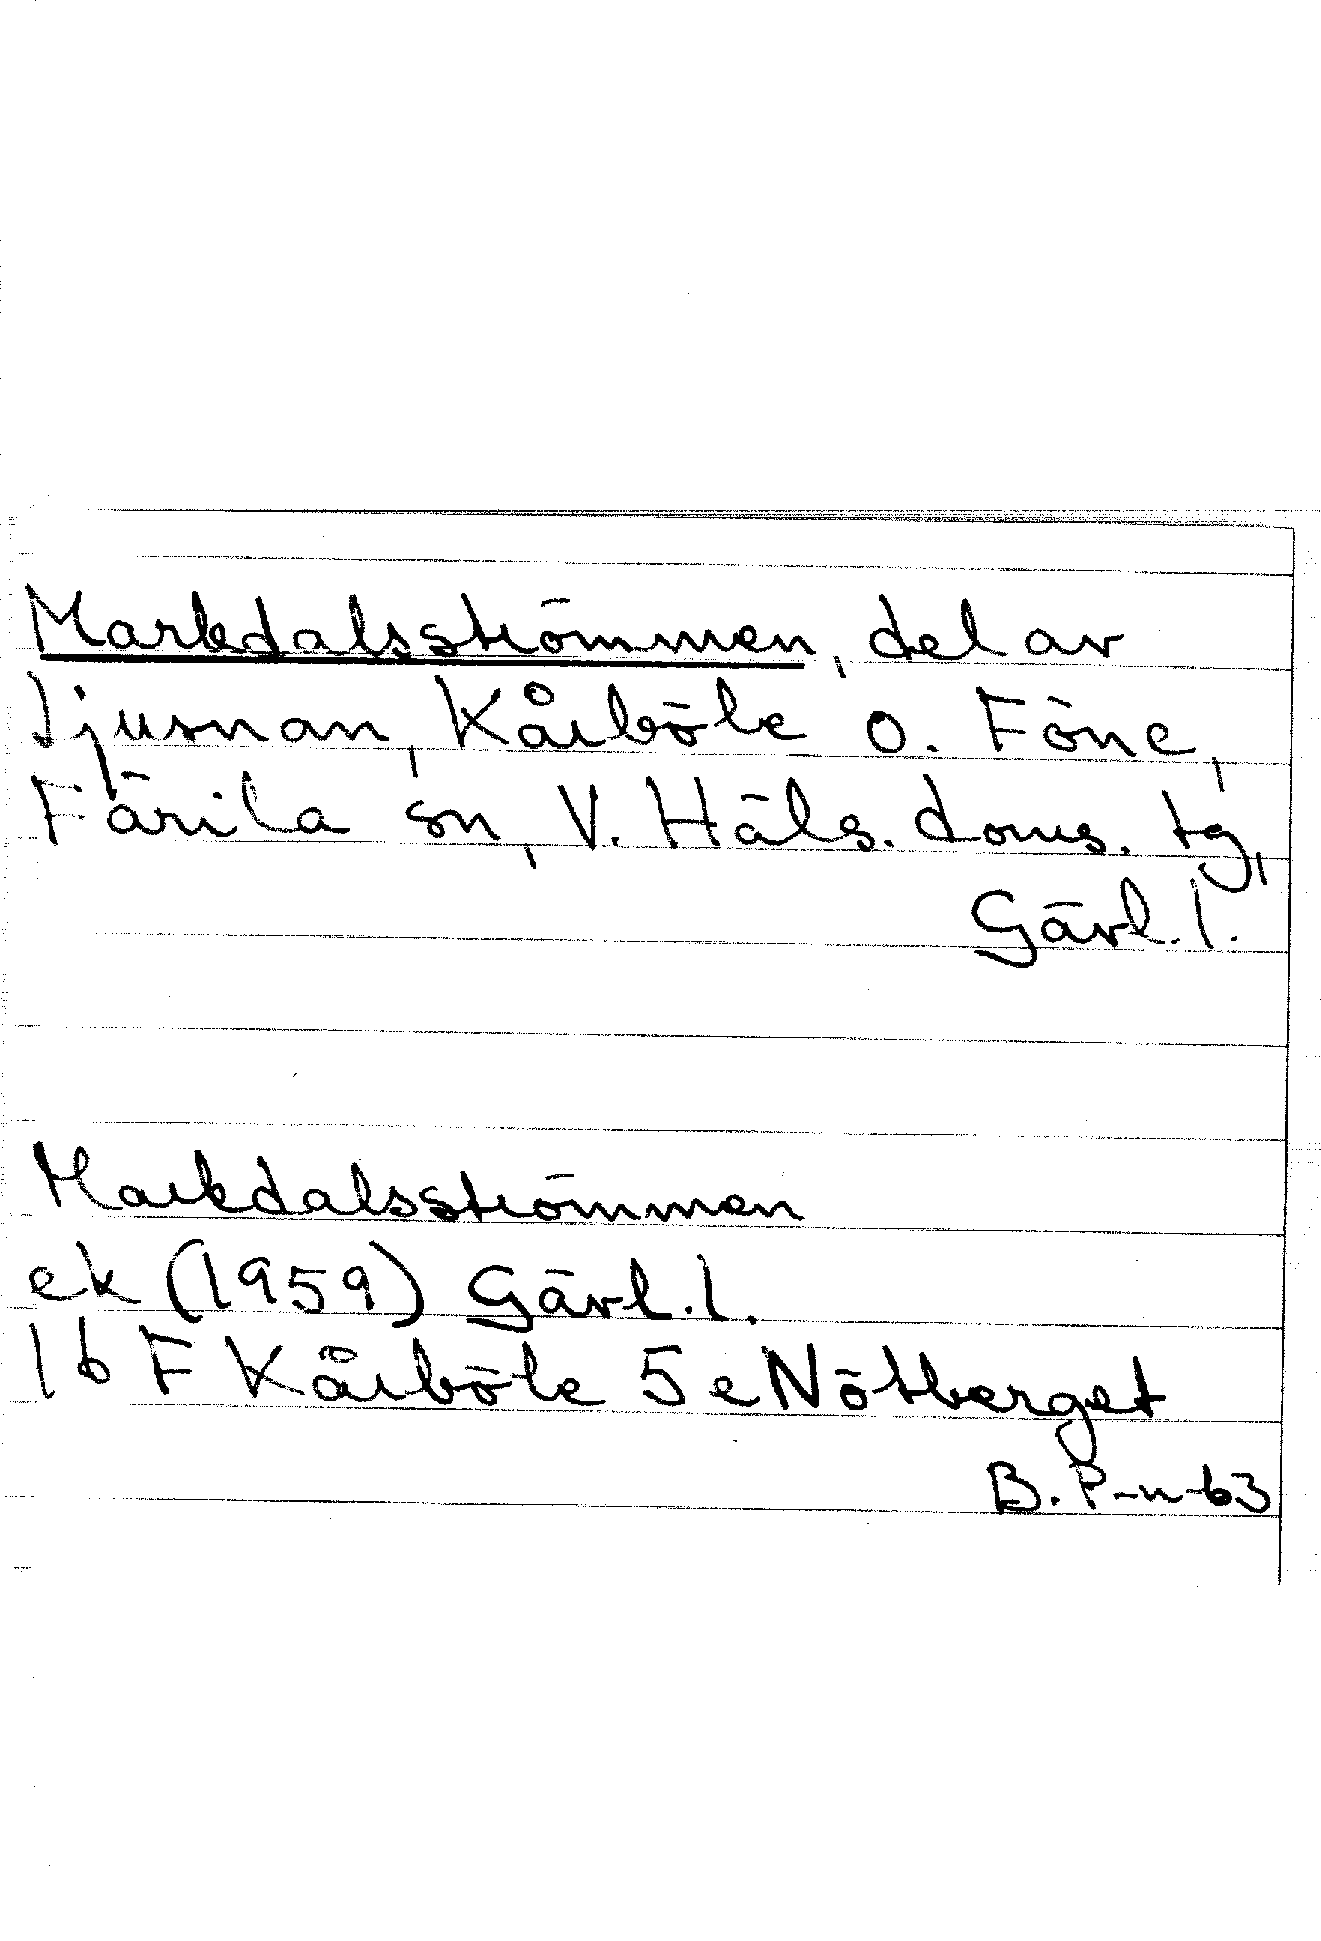 Markdalsströmmen, del av
Ljusnan, Kårböle o. Föne,
Färila sn, V. Häls. doms. tg,
Gävl. l.
Markdalsströmmen
ek (1959) Gävl. l.
16 F Kårböle 5 e Nötberget
B. P-n-63